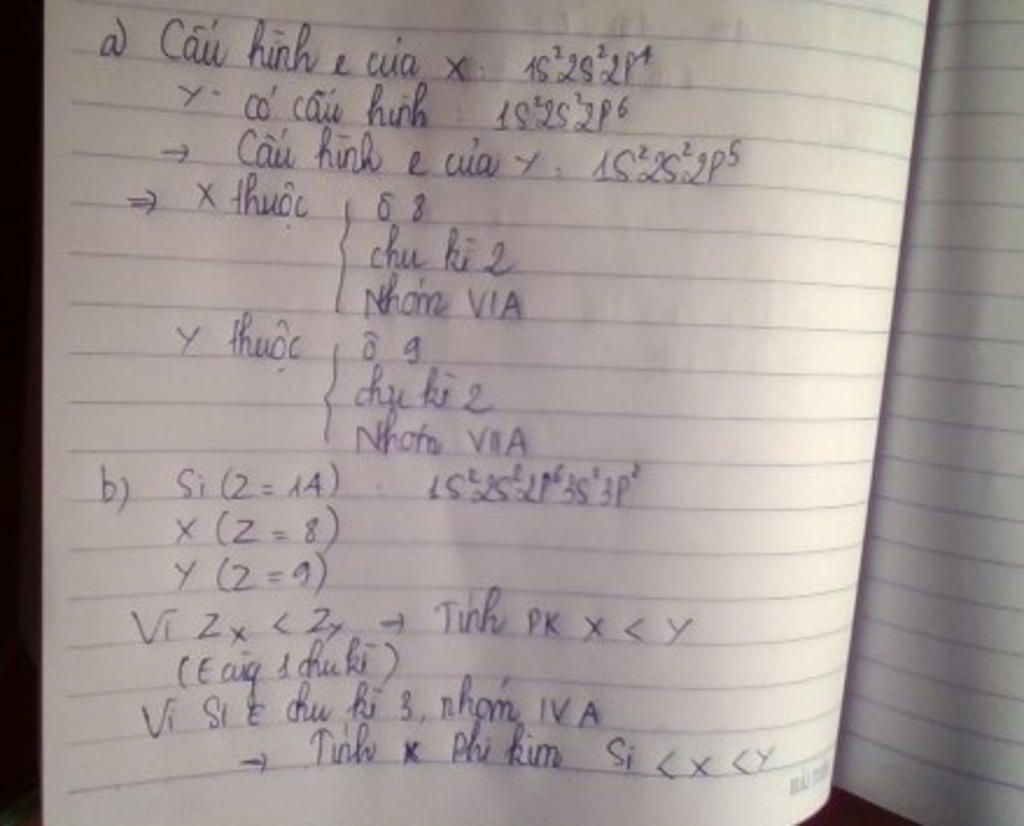 a) Cấu hình e của X: 1s²2s²2p⁴
Y⁻ có cấu hình: 1s²2s²2p⁶
→ Cấu hình e của Y: 1s²2s²2p⁵
⇒ X thuộc { ô 8
chu kì 2
Nhóm VIA
Y thuộc { ô 9
chu kì 2
Nhóm VIIA
b) Si (Z = 14) : 1s²2s²2p⁶3s²3p²
X (Z = 8)
Y (Z = 9)
Vì Zx < Zy → Tính PK X < Y
(E cùg 1 chu kì)
Vì Si E chu kì 3, nhóm IVA
→ Tính phi kim Si < X < Y